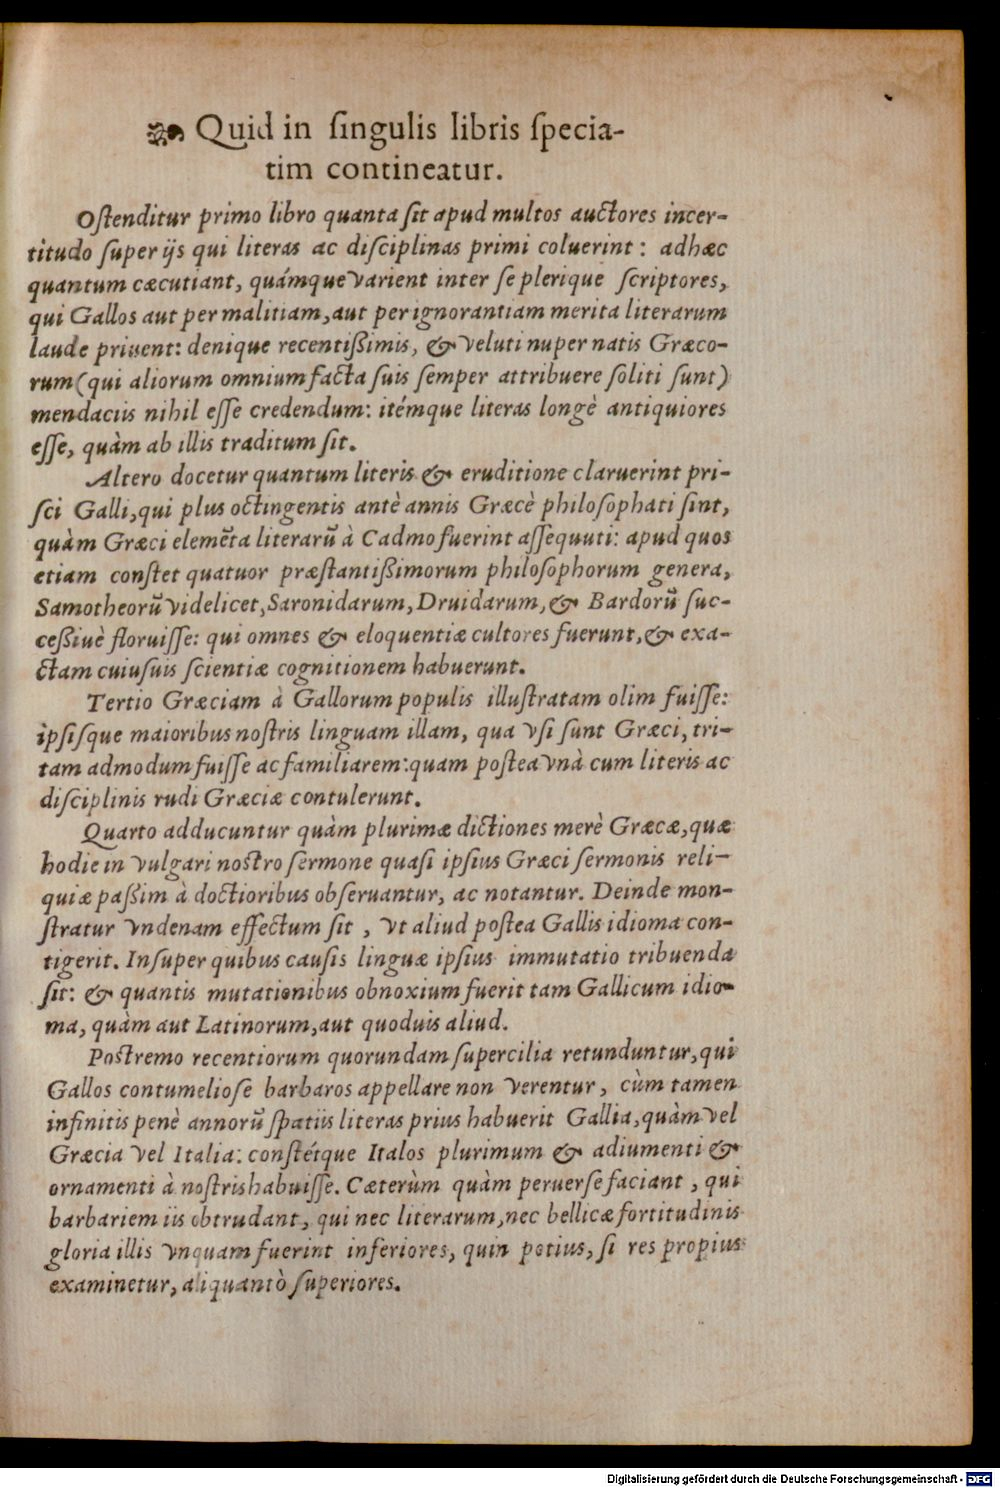 Quid in ſingulis libris specia-
tim contineatur.
Oſtenditur primo libro quanta ſit apud multos auctores incer-
titudo ſuper ijs qui literas ac diſciplinas primi coluerint: adhæc
quantum cæcutiant, quámque varient inter ſe plerique ſcriptores,
qui Gallos aut per malitiam, aut per ignorantiam merita literarum
laude priuent: denique recentißimis, & veluti nuper natis Græco-
rum (qui aliorum omnium facta ſuis ſemper attribuere ſoliti ſunt)
mendaciis nihil eſſe credendum: itémque literas longè antiquiores
eſſe, quàm ab illis traditum ſit.
Altero docetur quantum literis & eruditione claruerint pri-
ſci Galli, qui plus octingentis antè annis Græcè philoſophati ſint,
quàm Græci elemẽta literarũ à Cadmo fuerint aſſequuti: apud quos
etiam conſtet quatuor præſtantißimorum philoſophorum genera,
Samotheorũ videlicet, Saronidarum, Druidarum, & Bardorũ ſuc-
ceßiuè floruiſſe: qui omnes & eloquentiæ cultores fuerunt, & exa-
ctam cuiuſuis ſcientiæ cognitionem habuerunt.
Tertio Græciam à Gallorum populis illuſtratam olim fuiſſe:
ipſiſque maioribus noſtris linguam illam, qua vſi ſunt Græci, tri-
tam admodum fuiſſe ac familiarem: quam poſtea vnà cum literis ac
diſciplinis rudi Græciæ contulerunt.
Quarto adducuntur quàm plurimæ dictiones merè Græcæ, quæ
hodie in vulgari noſtro ſermone quaſi ipſius Græci ſermonis reli-
quiæ paßim à doctioribus obſeruantur, ac notantur. Deinde mon-
ſtratur vndenam effectum ſit, vt aliud poſtea Gallis idioma con-
tigerit. Inſuper quibus cauſis linguæ ipſius immutatio tribuenda
ſit: & quantis mutationibus obnoxium fuerit tam Gallicum idio-
ma, quàm aut Latinorum, aut quoduis aliud.
Poſtremo recentiorum quorundam ſupercilia retunduntur, qui
Gallos contumelioſe barbaros appellare non verentur, cùm tamen
infinitis penè annorũ ſpatiis literas prius habuerit Gallia, quàm vel
Græcia vel Italia: conſtétque Italos plurimum & adiumenti &
ornamenti à noſtris habuiſſe. Cæterùm quàm peruerſe faciant, qui
barbariem iis obtrudant, qui nec literarum, nec bellicæ fortitudinis
gloria illis vnquam fuerint inferiores, quin potius, ſi res propius
examinetur, aliquantò ſuperiores.
Digitalisierung gefördert durch die Deutsche Forschungsgemeinschaft - DFG